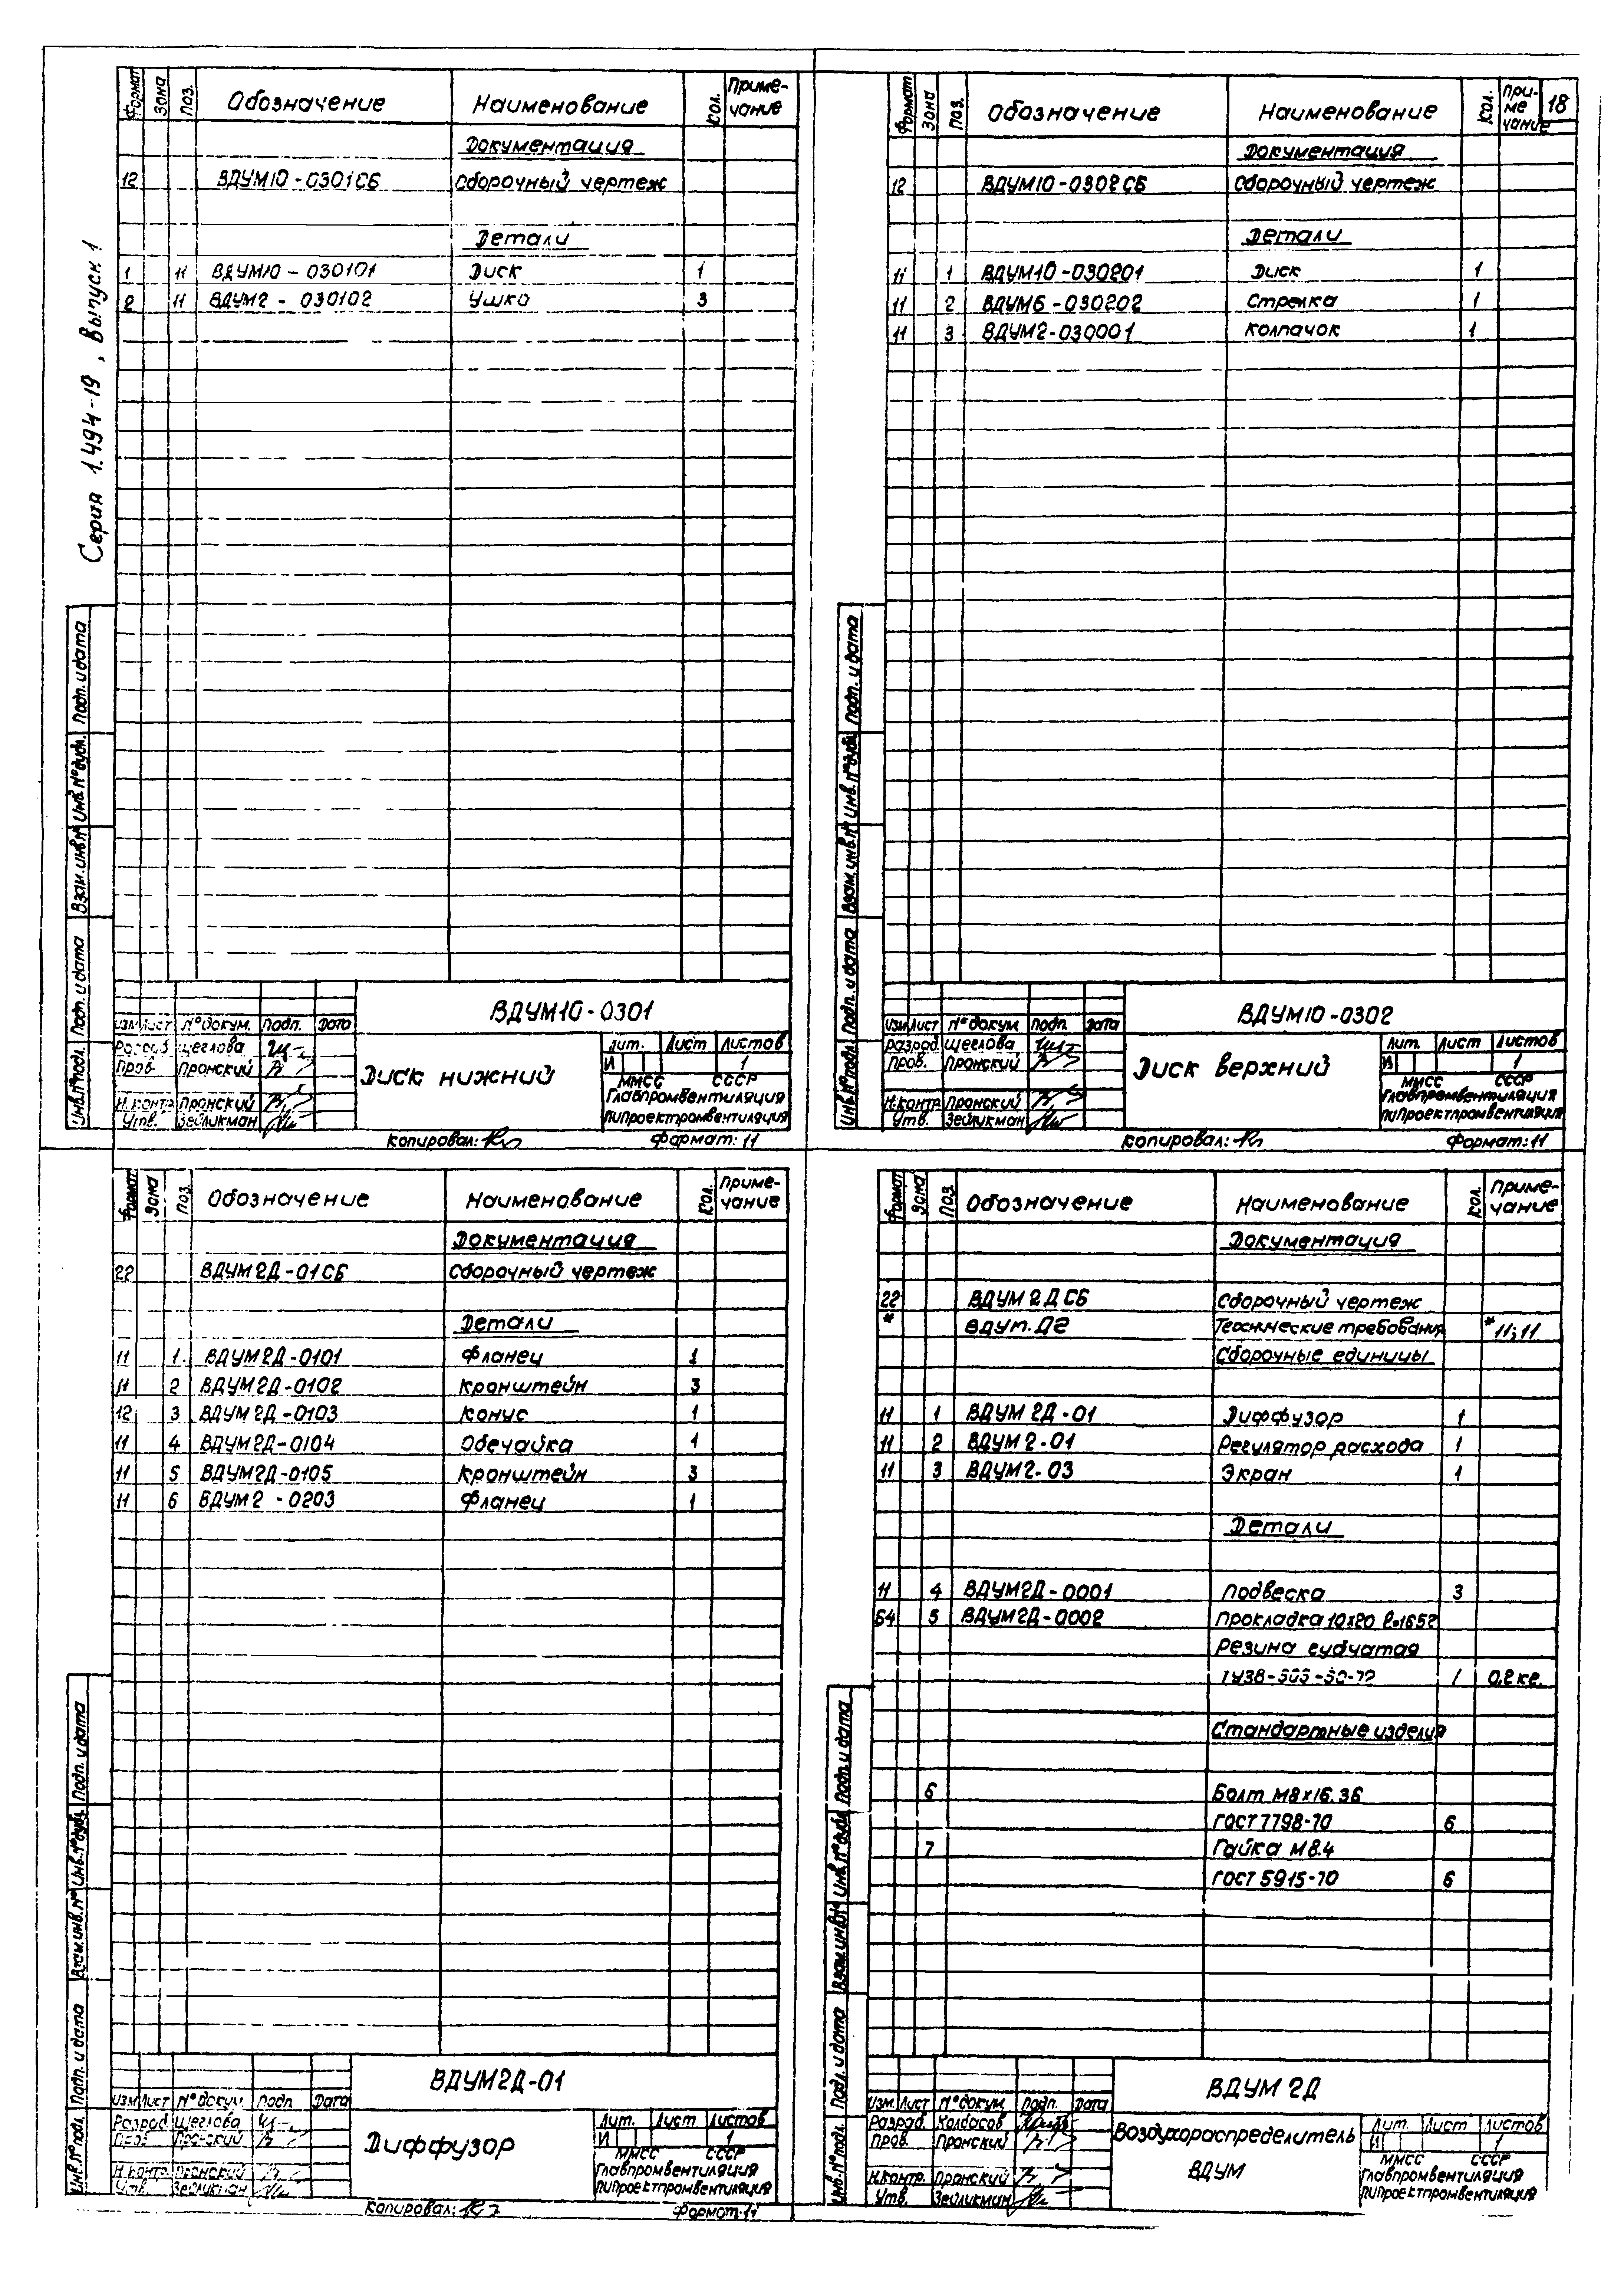 Серия 1.494-19, выпуск 1
Формат Зона Поз. Обозначение Наименование Кол. Приме-
чание
Документация
12 ВДУМ10-0301СБ Сборочный чертеж
Детали
1 11 ВДУМ10-030101 Диск 1
2 11 ВДУМ2-030102 Ушко 3
Инв.№подл. Подп. и дата Взам.инв.№ Инв.№дубл. Подп. и дата
ВДУМ10-0301
Изм Лист №докум. Подп. Дата
Разраб Щеглова
Пров. Пронский
Н.контр Пронский
Утв. Зейликман
Диск нижний
Лит. Лист Листов
И 1
ММСС СССР
Главпромвентиляция
ПИПроектпромвентиляция
Копировал: Формат: 11
18
Формат Зона Поз. Обозначение Наименование Кол. При-
ме
чание
Документация
12 ВДУМ10-0302СБ Сборочный чертеж
Детали
11 1 ВДУМ10-030201 Диск 1
11 2 ВДУМ6-030202 Стрелка 1
11 3 ВДУМ2-030001 Колпачок 1
Инв.№подл. Подп. и дата Взам.инв.№ Инв.№дубл. Подп. и дата
ВДУМ10-0302
Изм Лист №докум. Подп. Дата
Разраб. Щеглова
Пров. Пронский
Н.контр Пронский
Утв. Зейликман
Диск верхний
Лит. Лист Листов
И 1
ММСС СССР
Главпромвентиляция
ПИПроектпромвентиляция
Копировал: Формат: 11
Формат Зона Поз. Обозначение Наименование Кол. Приме-
чание
Документация
22 ВДУМ2Д-01СБ Сборочный чертеж
Детали
11 1 ВДУМ2Д-0101 Фланец 1
11 2 ВДУМ2Д-0102 Кронштейн 3
12 3 ВДУМ2Д-0103 Конус 1
11 4 ВДУМ2Д-0104 Обечайка 1
11 5 ВДУМ2Д-0105 Кронштейн 3
11 6 ВДУМ2-0203 Фланец 1
Инв.№подл. Подп. и дата Взам.инв.№ Инв.№дубл. Подп. и дата
ВДУМ2Д-01
Изм Лист №докум. Подп Дата
Разраб Щеглова
Пров Пронский
Н.контр. Пронский
Утв. Зейликман
Диффузор
Лит. Лист Листов
И 1
ММСС СССР
Главпромвентиляция
ПИПроектпромвентиляция
Копировал: Формат: 11
Формат Зона Поз. Обозначение Наименование Кол. Приме-
чание
Документация
22 ВДУМ2ДСБ Сборочный чертеж
* ВДУМ.Д2 Технические требования *11;11
Сборочные единицы
11 1 ВДУМ2Д-01 Диффузор 1
11 2 ВДУМ2-01 Регулятор расхода 1
11 3 ВДУМ2-03 Экран 1
Детали
11 4 ВДУМ2Д-0001 Подвеска 3
Б4 5 ВДУМ2Д-0002 Прокладка 10х20 ℓ=1652
Резина губчатая
1 0,2 кг.
Стандартные изделия
6 Болт М8х16.36
ГОСТ 7798-70 6
7 Гайка М8.4
ГОСТ 5915-70 6
Инв.№подл. Подп. и дата Взам.инв.№ Инв.№дубл. Подп. и дата
ВДУМ 2Д
Изм. Лист №докум Подп. Дата
Разраб. Колбасов
Пров. Пронский
Н.контр. Пронский
Утв. Зейликман
Воздухораспределитель
ВДУМ
Лит. Лист Листов
И 1
ММСС СССР
Главпромвентиляция
ПИПроектпромвентиляция